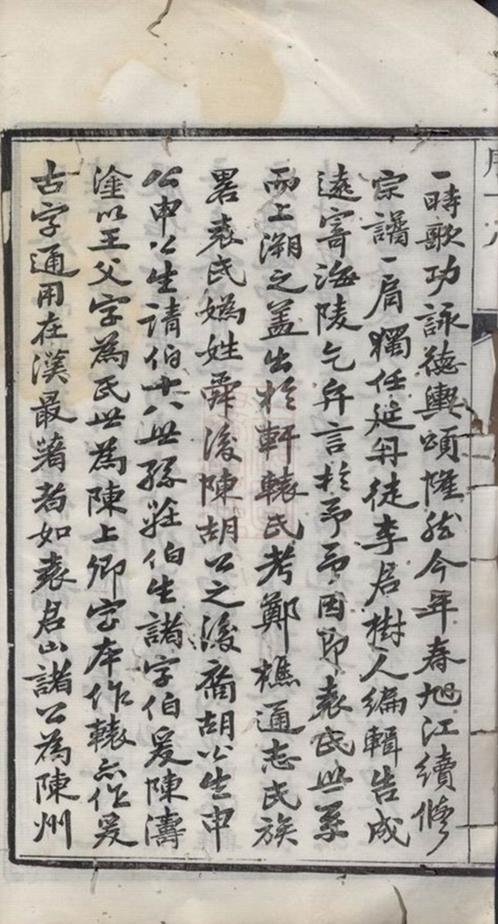 一時歌功詠德輿頌隆然今年春旭江續修
宗譜一肩獨任延丹徒李君樹人編輯告成
遠寄海陵乞弁言於予予因即袁氏世系
而上溯之蓋出於軒轅氏考鄭樵通志氏族
畧袁氏媯姓舜後陳胡公之後裔胡公生申
公申公生靖伯十八世孫莊伯生諸字伯爰陳濤
塗以王父字為氏世為陳上卿宣本作轅亦作爰
古字通用在漢最著者如袁君山諸公為陳州